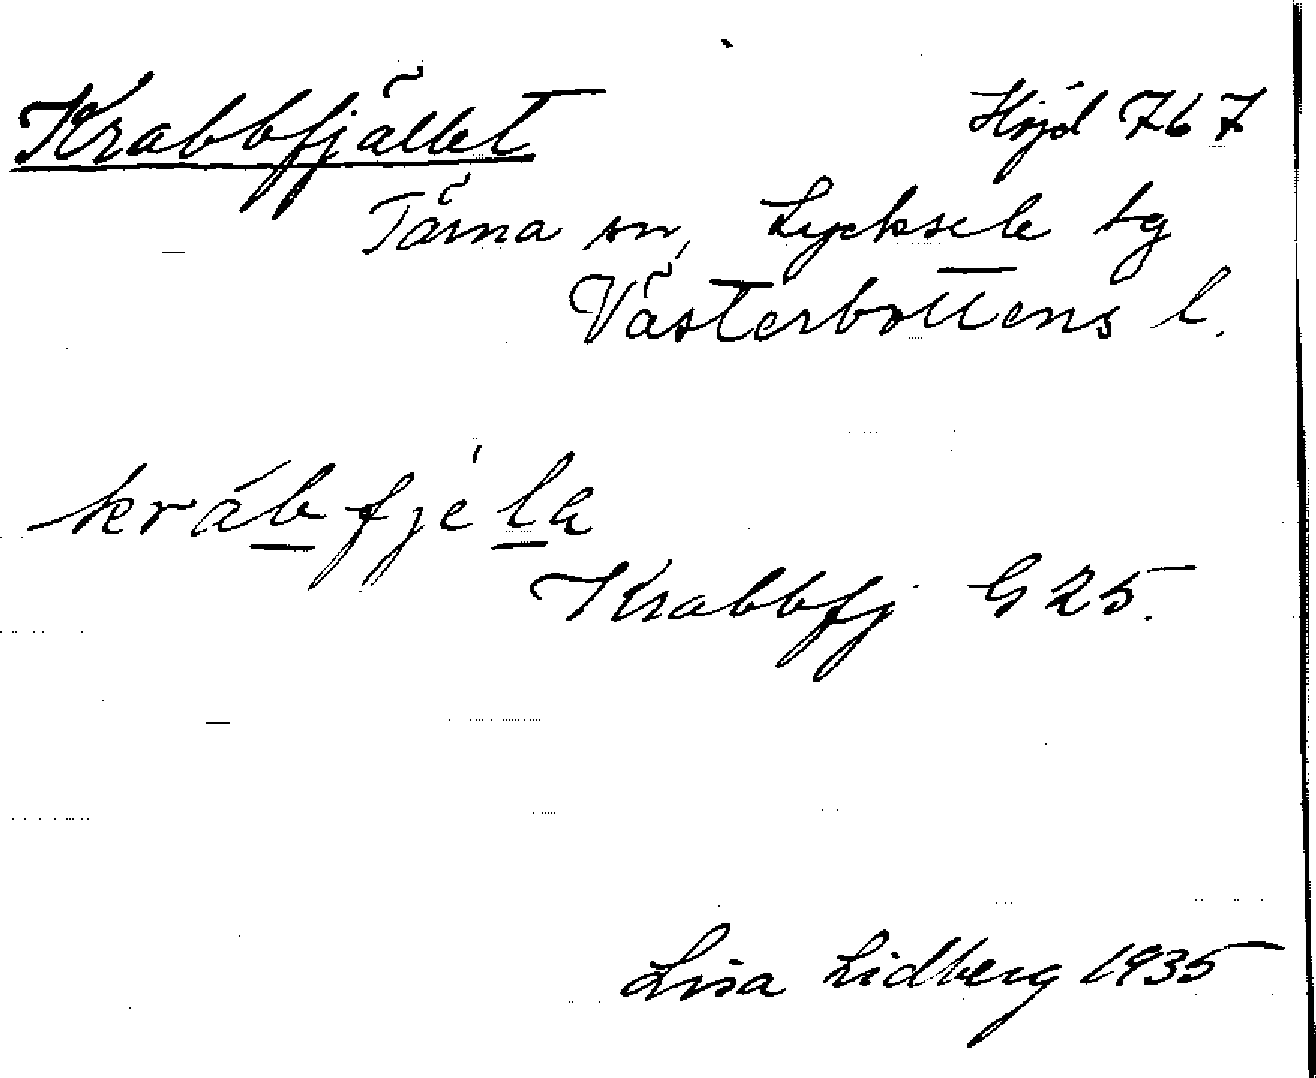 Krabbfjället Höjd 767
Tärna sn, Lycksele tg
Västerbottens l.
krábfjéla
Krabbfj G 25.
Lisa Lidberg 1935